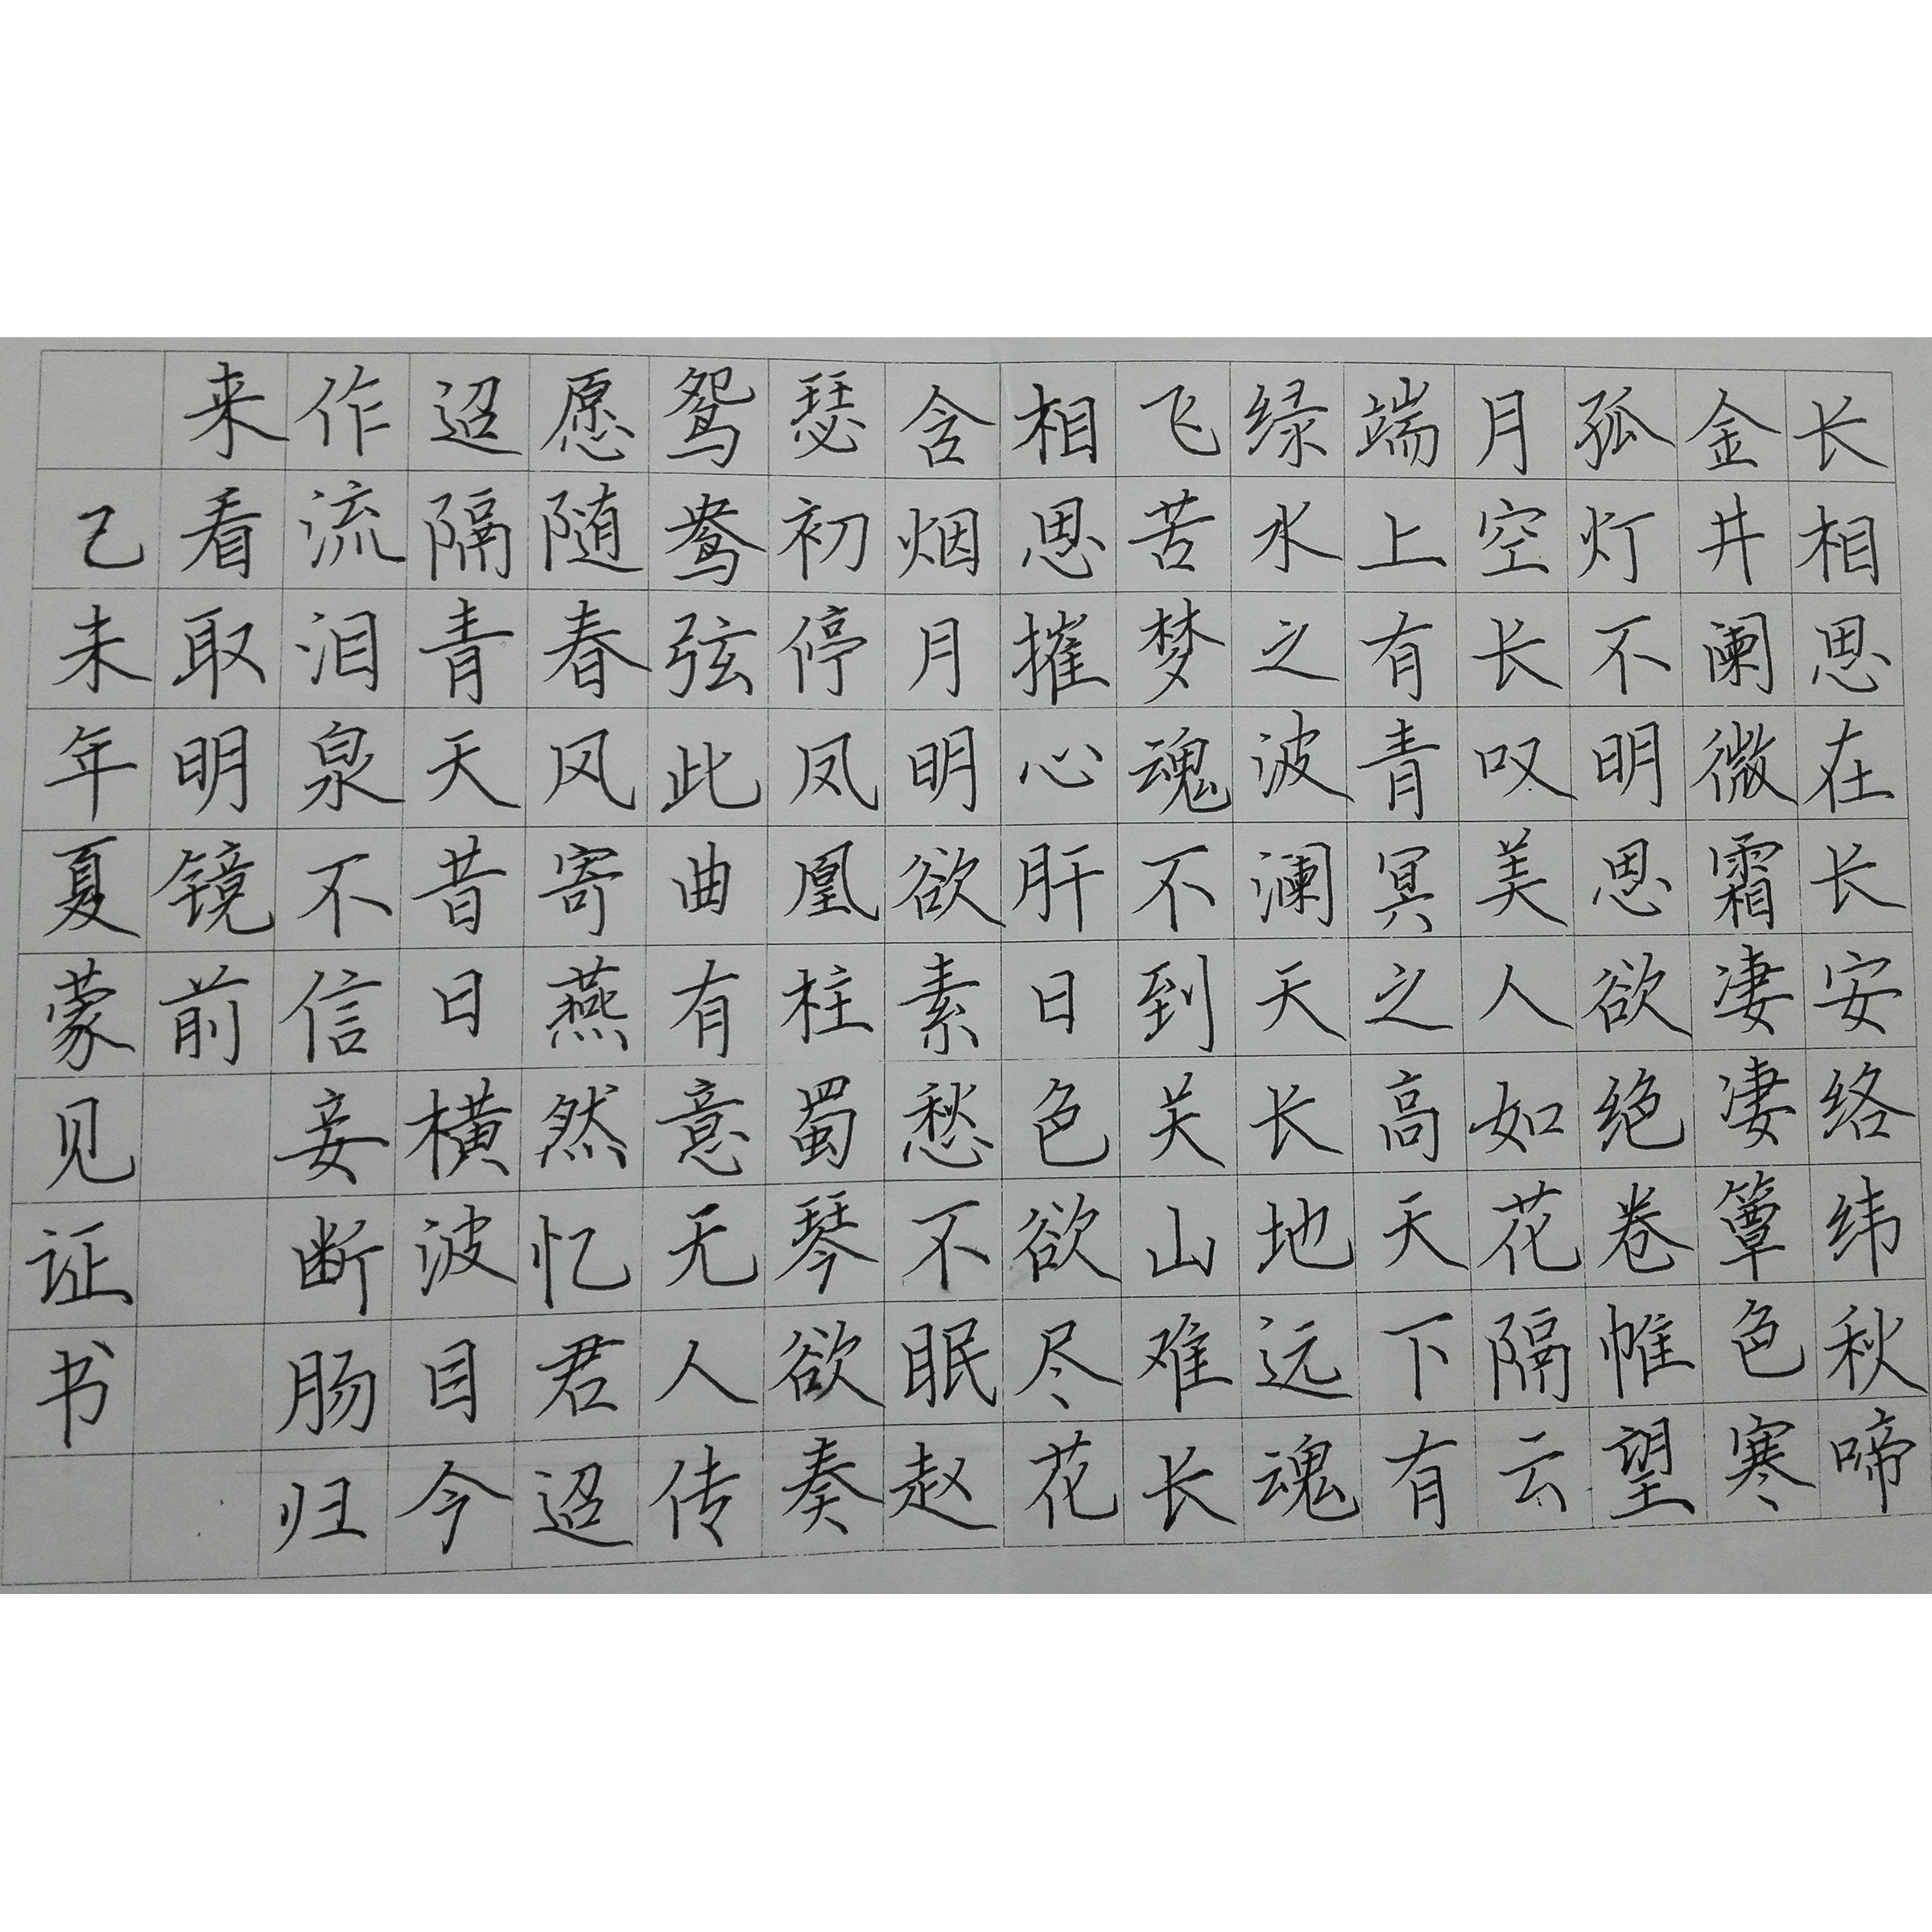 长相思在长安络纬秋啼
金井阑微霜凄凄簟色寒
孤灯不明思欲绝卷帷望
月空长叹美人如花隔云
端上有青冥之高天下有
绿水之波澜天长地远魂
飞苦梦魂不到关山难长
相思摧心肝日色欲尽花
含烟月明欲素愁不眠赵
瑟初停凤凰柱蜀琴欲奏
鸳鸯弦此曲有意无人传
愿随春风寄燕然忆君迢
迢隔青天昔日横波目今
作流泪泉不信妾断肠归
来看取明镜前
己未年夏蒙见证书